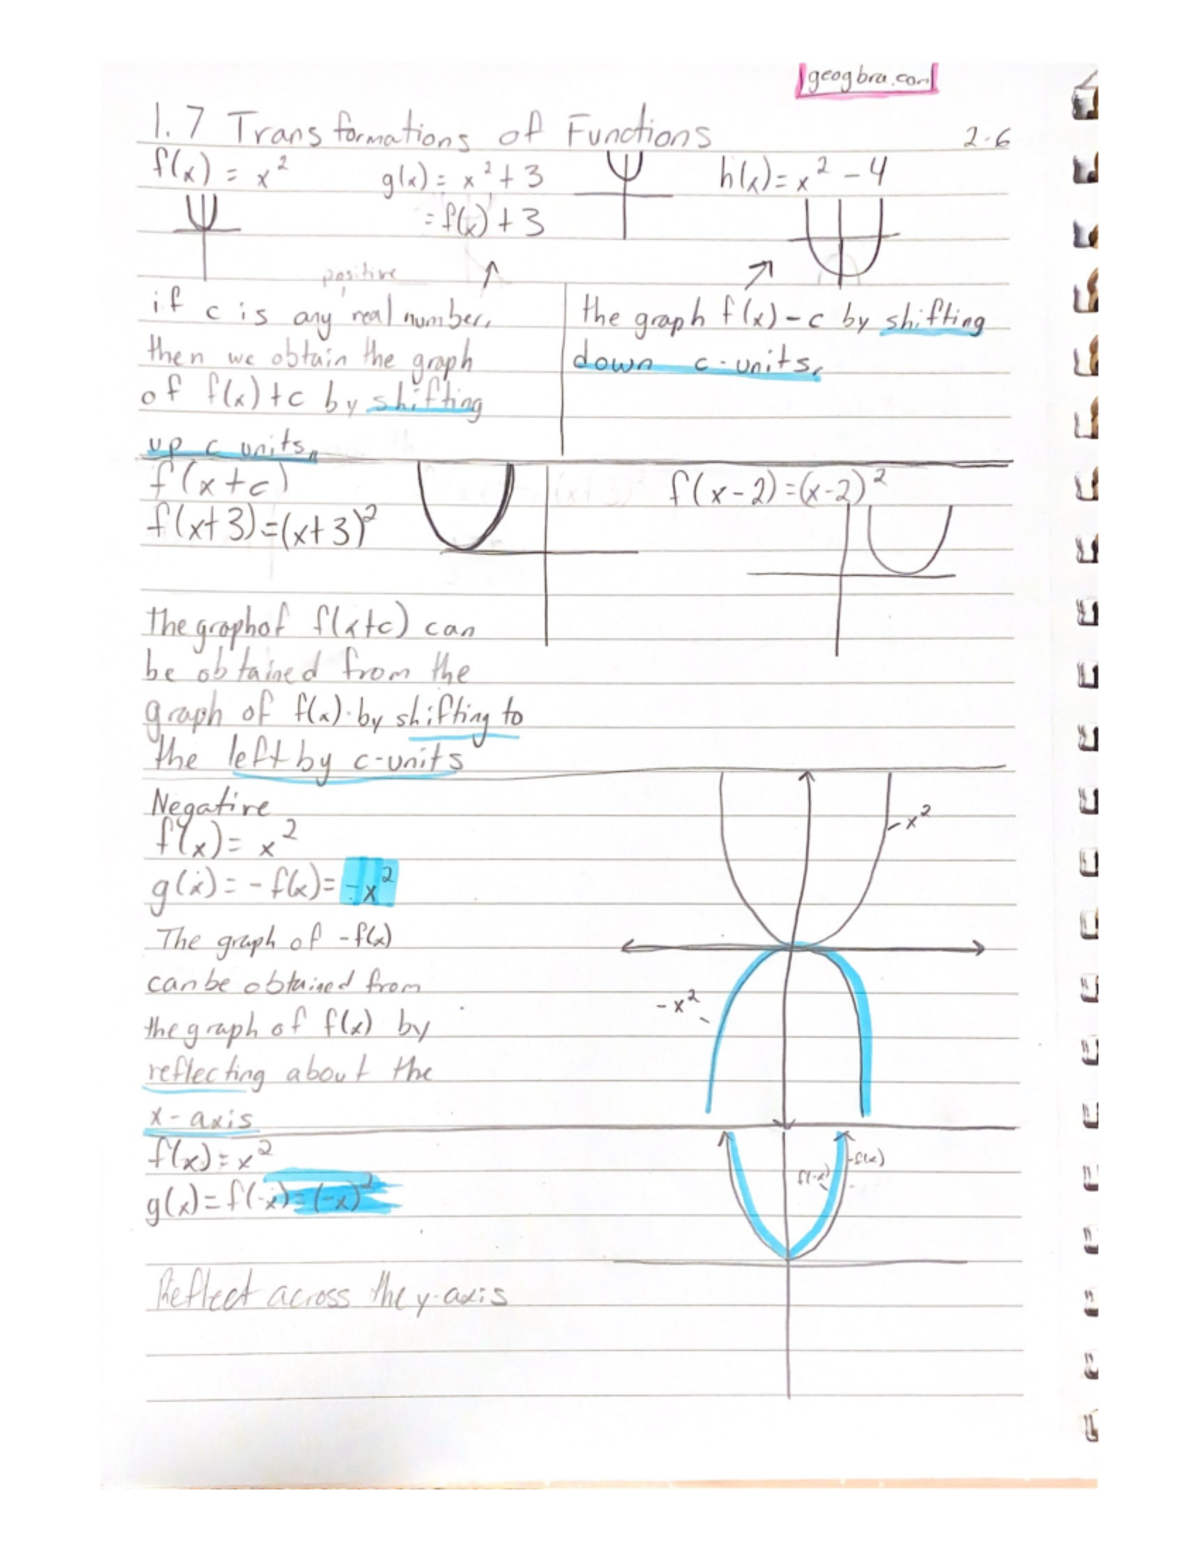 geogbra.com
1.7 Transformations of Functions 2-6
f(x) = x² g(x) = x² + 3 h(x) = x² - 4
= f(x) + 3
positive
if c is any real number,
then we obtain the graph
of f(x) + c by shifting
up c units.
the graph f(x) - c by shifting
down c-units.
f(x+c)
f(x+3)=(x+3)²
f(x-2)=(x-2)²
the graph of f(x+c) can
be obtained from the
graph of f(x) by shifting to
the left by c-units
Negative
f(x) = x²
g(x) = -f(x) = -x²
The graph of -f(x)
can be obtained from
the graph of f(x) by
reflecting about the
x-axis
- x²
- x²
f(x) = x²
g(x) = f(-x) = (-x)²
f(-x) -f(x)
Reflect across the y-axis